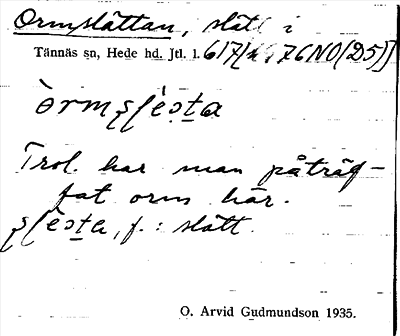 Ormslåttan, slått i
Tännäs sn, Hede hd. Jtl. l. 617[76NO(25)]
òrmʂʃèɔta
Trol. har man påträf-
fat orm här.
ʂʃèɔta, f.: slått.
O. Arvid Gudmundson 1935.